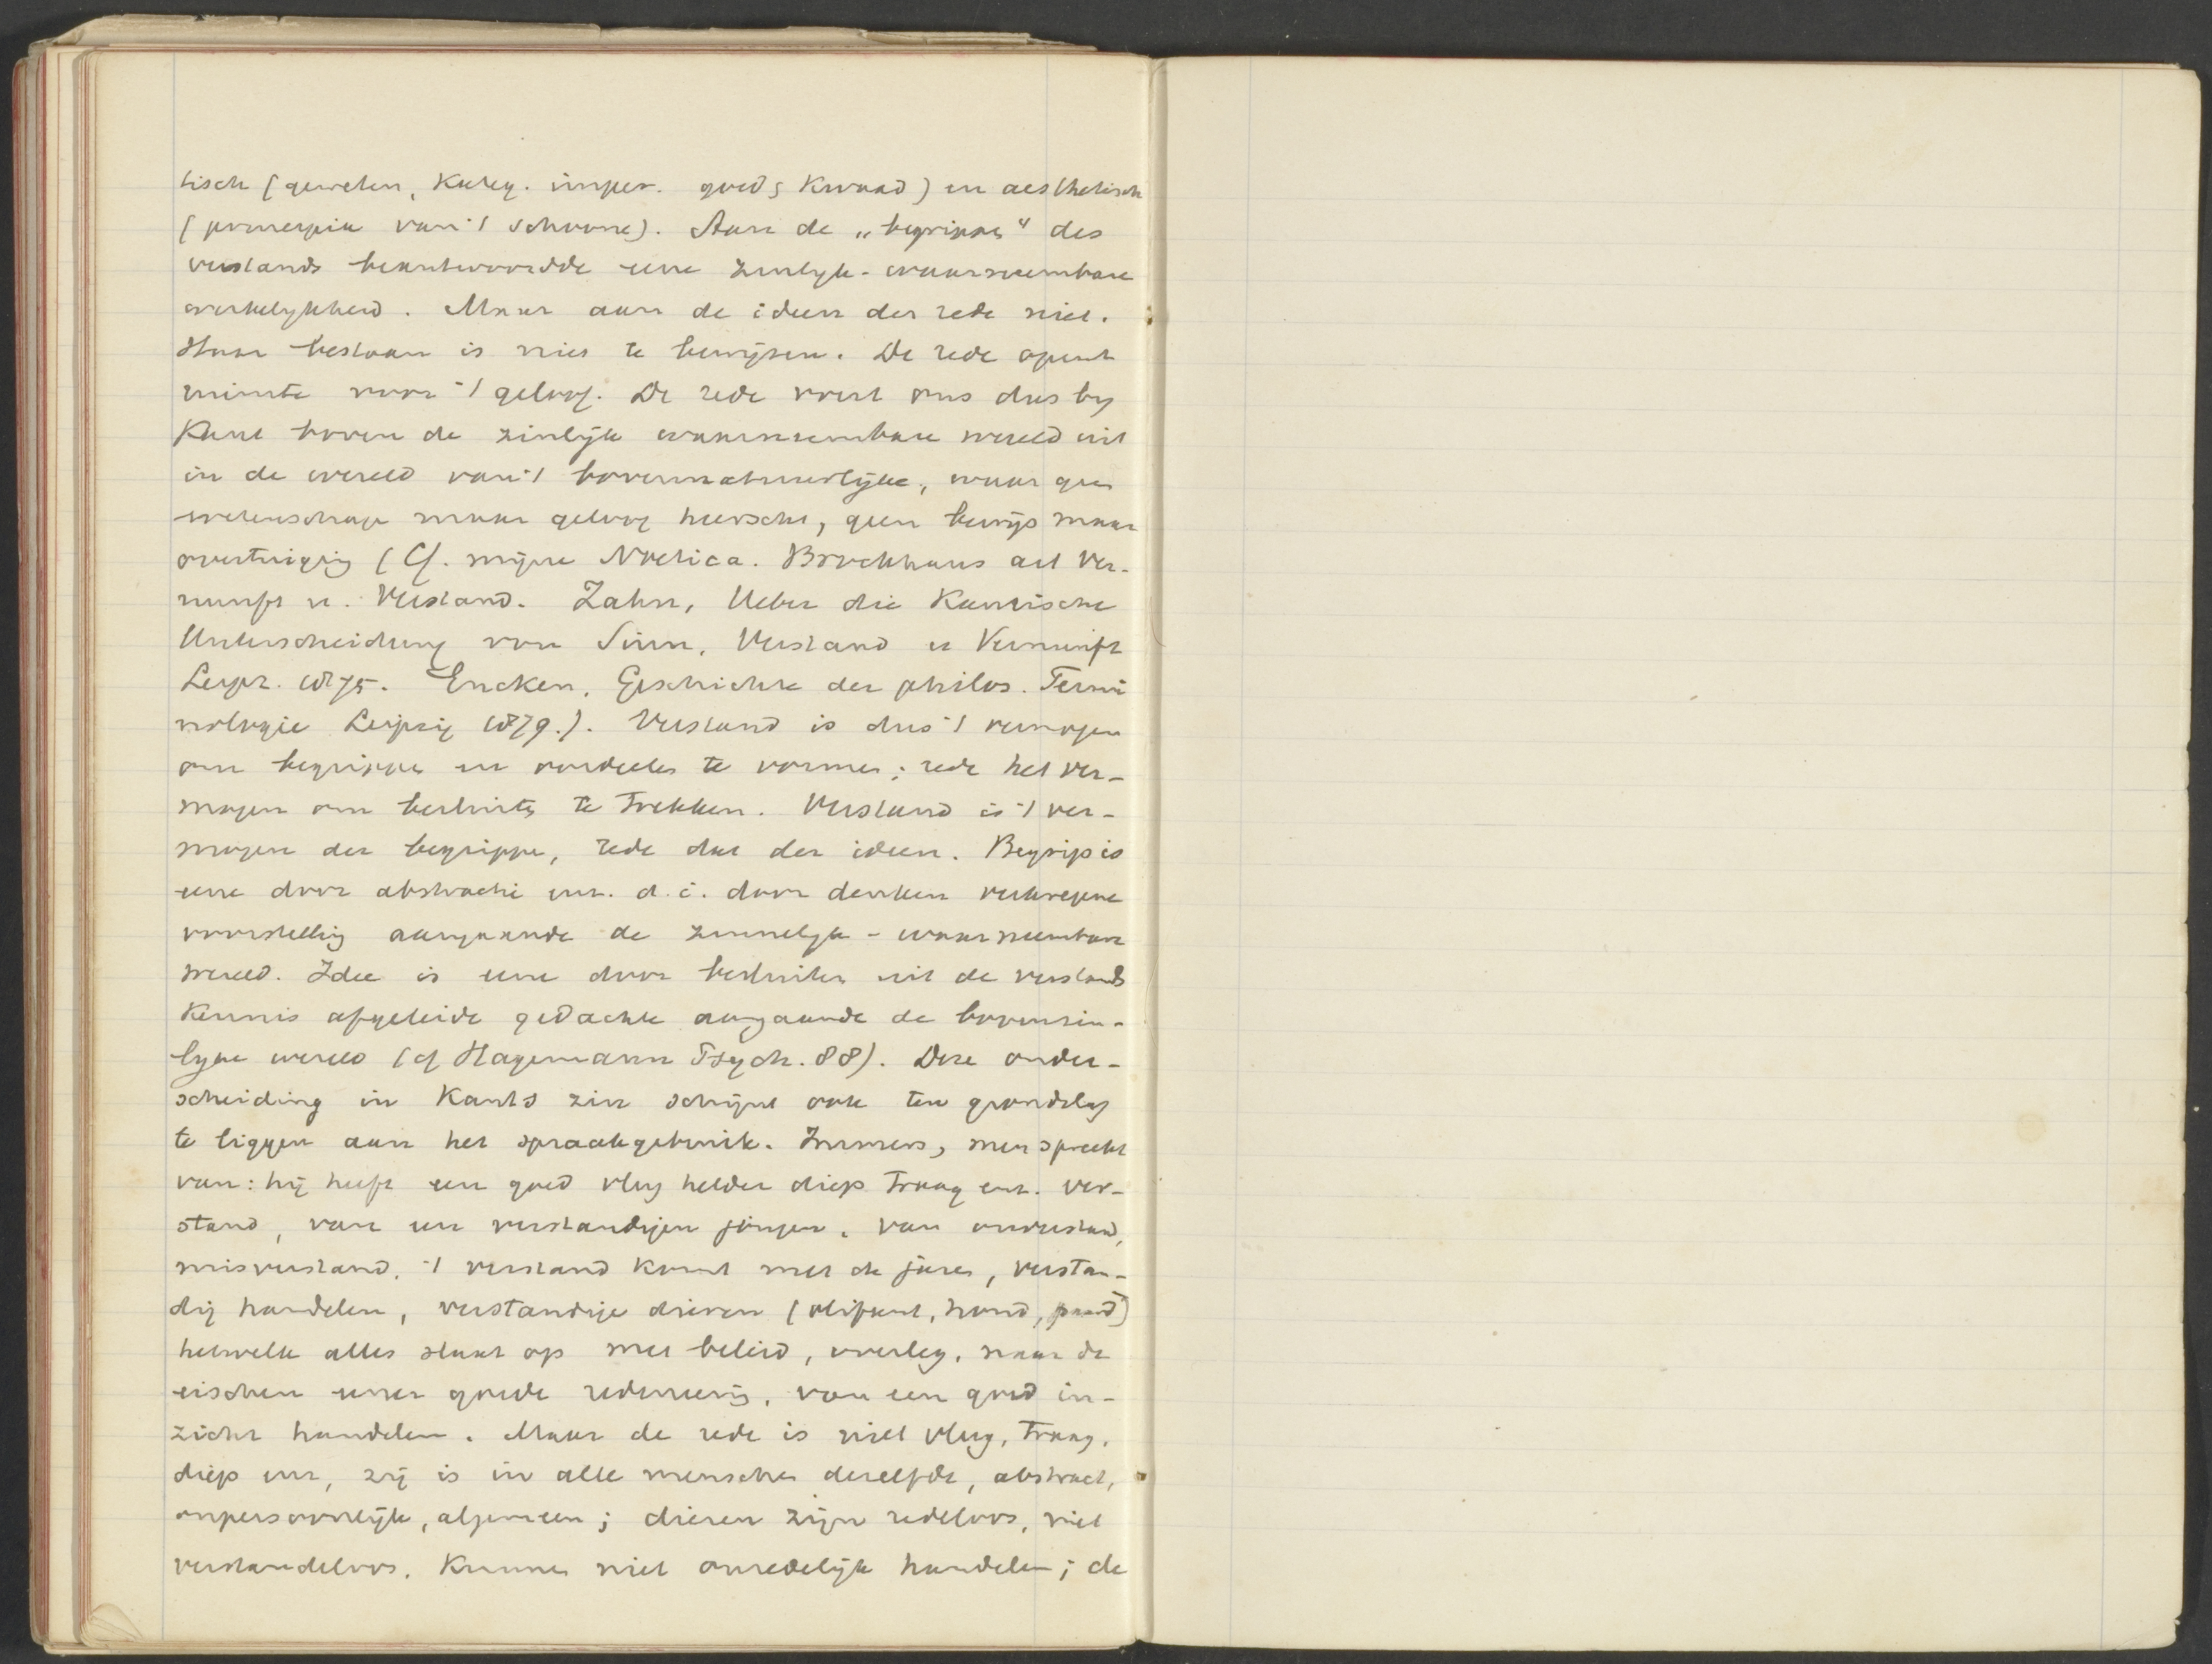 tisch (geweten, Kateg. imper. goed & Kwaad) en aesthetisch
(principia van 't schoone). Aan de „begrippen" des
verstands beantwoordde eene zinlyk-waarneembare
werkelykheid. Maar aan de ideen der rede niet.
Haar bestaan is niet te bewijzen. De rede opent
ruimte voor 't geloof. De rede voert ons dus by
Kant boven de zinlijk waarneembare wereld uit
in de wereld van 't bovennatuurlijke, waar geen
wetenschap maar geloof heerscht, geen bewijs maar
overtuiging (Cf. mijne Noetica. Brockhaus art Ver-
nunft u. Verstand. Zahn, Ueber die Kantische
Unterscheidung von Sinn, Verstand u Vernunft
Leipz. 1875. Eucken, Geschichte der philos. Termi
nologie Leipzig 1879.). Verstand is dus 't vermogen
om begrippen en oordeelen te vormen; rede het ver-
mogen om besluiten te trekken. Verstand is 't ver-
mogen der begrippen, rede dat der ideen. Begrip is
eene door abstractie enz. d.i. door denken verkregene
voorstelling aangaande de zinnelyk-waarneembare
wereld. Idee is eene door besluiten uit de verstands
Kennis afgeleide gedachte aangaande de bovenzin-
lyke wereld (cf Hagemann Psych. 88). Deze onder-
scheiding in Kants zin schijnt ook ten grondslag
te liggen aan het spraakgebruik. Immers, men spreekt
van: hij heeft een goed vlug helder diep traag enz. ver-
stand, van een verstandigen jongen, van onverstand,
misverstand, 't verstand komt met de jaren, verstan-
dig handelen, verstandige dieren (olifant, hond, paard)
hetwelk alles slaat op met beleid, overleg, naar de
eischen eener goede redeneering, van een goed in-
zicht handelen. Maar de rede is niet vlug, traag,
diep enz, zij is in alle menschen dezelfde, abstract,
onpersoonlijk, algemeen; dieren zijn redeloos, niet
verstandeloos, Kunnen niet onredelijk handelen; de